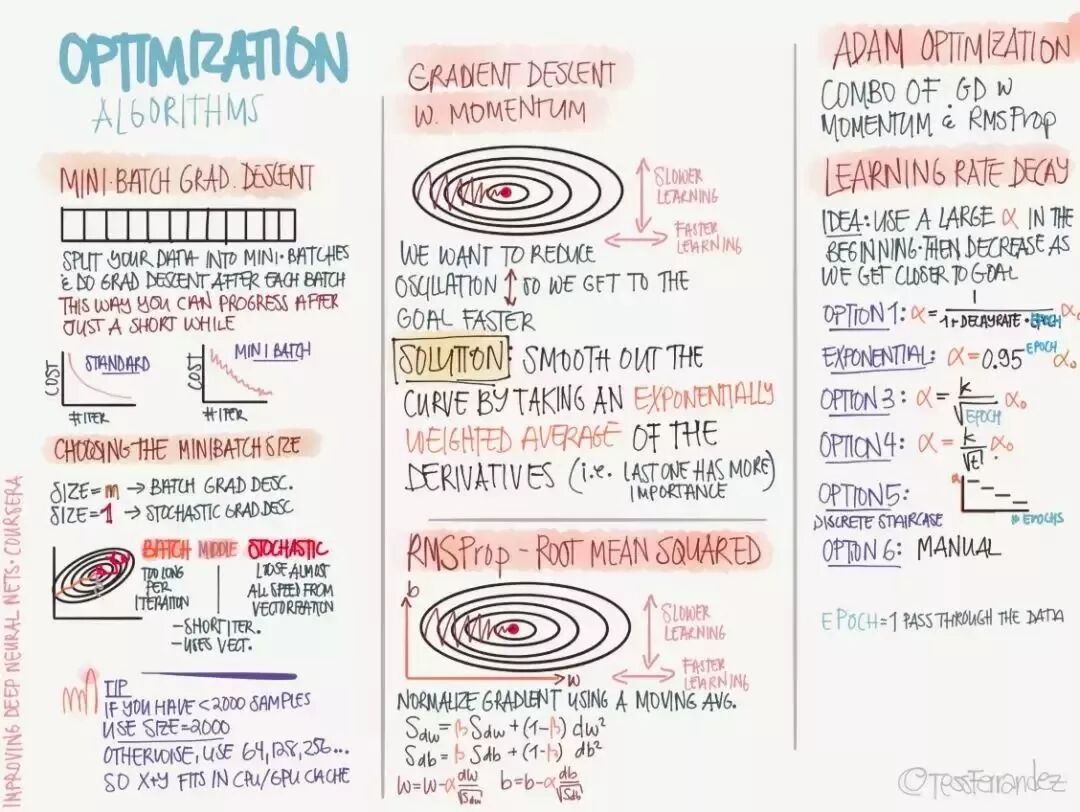 OPTIMIZATION
ALGORITHMS
MINI-BATCH GRAD. DESCENT
SPLIT YOUR DATA INTO MINI-BATCHES
& DO GRAD DESCENT AFTER EACH BATCH
THIS WAY YOU CAN PROGRESS AFTER
JUST A SHORT WHILE
COST
STANDARD
# ITER
COST
MINI BATCH
# ITER
CHOOSING THE MINIBATCH SIZE
SIZE=m → BATCH GRAD DESC.
SIZE=1 → STOCHASTIC GRAD.DESC
BATCH MIDDLE STOCHASTIC
TOO LONG
PER
ITERATION
LOSE ALMOST
ALL SPEED FROM
VECTORIZATION
-SHORT ITER.
-USES VECT.
TIP
IF YOU HAVE <2000 SAMPLES
USE SIZE=2000
OTHERWISE, USE 64,128,256...
SO X+Y FITS IN CPU/GPU CACHE
IMPROVING DEEP NEURAL NETS · COURSERA
GRADIENT DESCENT
W. MOMENTUM
SLOWER
LEARNING
FASTER
LEARNING
WE WANT TO REDUCE
OSCILLATION ↕ SO WE GET TO THE
GOAL FASTER
SOLUTION: SMOOTH OUT THE
CURVE BY TAKING AN EXPONENTIALLY
WEIGHTED AVERAGE OF THE
DERIVATIVES (i.e. LAST ONE HAS MORE
IMPORTANCE)
RMSProp - ROOT MEAN SQUARED
b
SLOWER
LEARNING
W
FASTER
LEARNING
NORMALIZE GRADIENT USING A MOVING AVG.
Sdw = β Sdw + (1-β) dw²
Sdb = β Sdb + (1-β) db²
w=w-α dw/√Sdw b=b-α db/√Sdb
ADAM OPTIMIZATION
COMBO OF GD W
MOMENTUM & RMSProp
LEARNING RATE DECAY
IDEA: USE A LARGE α IN THE
BEGINNING. THEN DECREASE AS
WE GET CLOSER TO GOAL
OPTION 1: α = 1/(1+DECAYRATE·EPOCH) α₀
EXPONENTIAL: α=0.95^EPOCH α₀
OPTION 3: α = k/√EPOCH α₀
OPTION 4: α = k/√t α₀
OPTION 5:
DISCRETE STAIRCASE
α
EPOCHS
OPTION 6: MANUAL
EPOCH = 1 PASS THROUGH THE DATA
©TessFerrandez